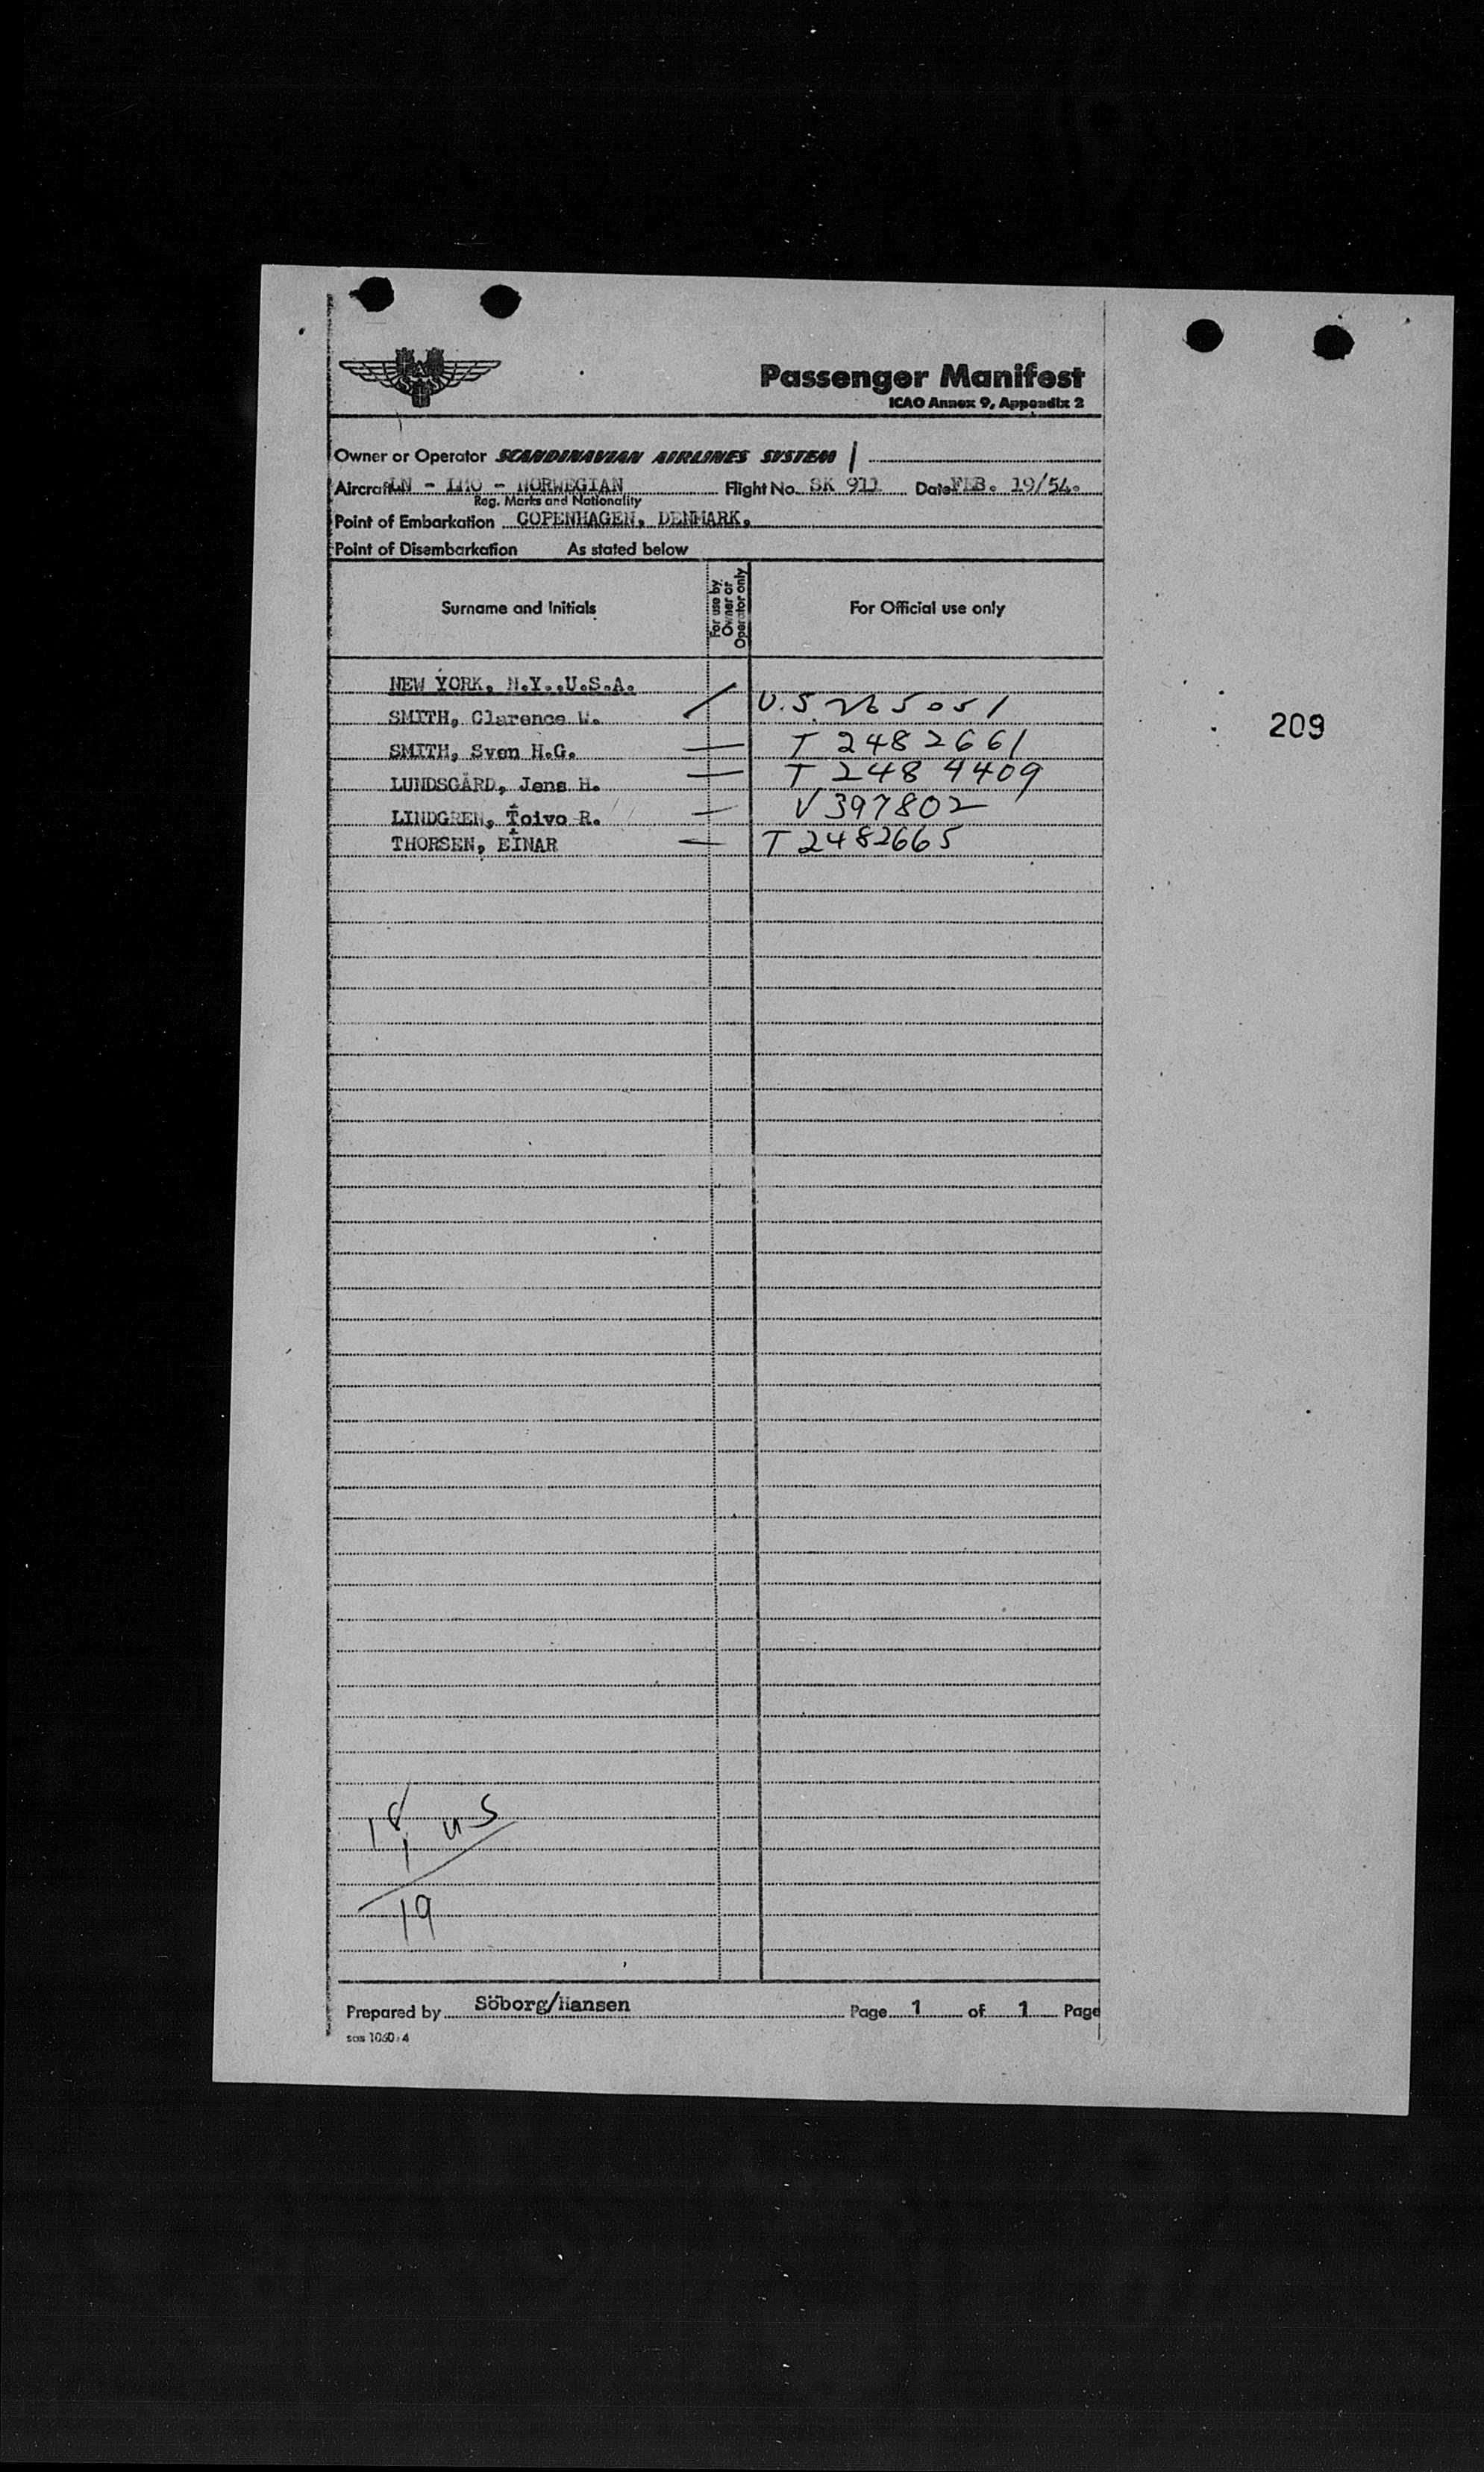 Passenger Manifest
ICAO Annex 9, Appendix 2
Owner or Operator SCANDINAVIAN AIRLINES SYSTEM
Aircraft LN - LMO - NORWEGIAN Flight No. SK 911 Date FEB. 19/54.
Reg. Marks and Nationality
Point of Embarkation COPENHAGEN, DENMARK.
Point of Disembarkation As stated below
Surname and Initials For use by Owner or Operator only For Official use only
NEW YORK, N.Y.,U.S.A.
SMITH, Clarence W. U.S. 265051
209
SMITH, Sven H.G. T 2482661
LUNDSGÅRD, Jens H. T 2484409
LINDGREN, Toivo R. V 397802
THORSEN, EINAR T 2482665
18 US
1
19
Prepared by Söborg/Hansen Page 1 of 1 Page
sas 1060:4